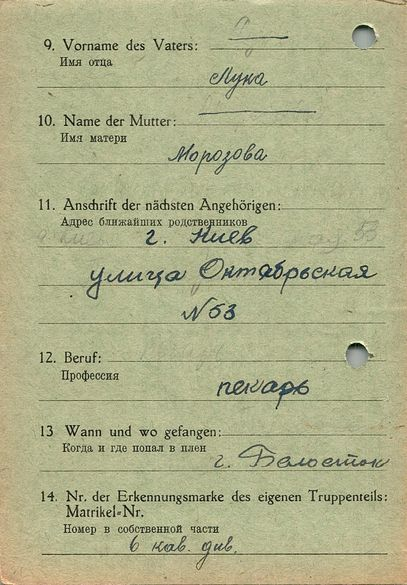 9. Vorname des Vaters:
Имя отца
Лука
10. Name der Mutter:
Имя матери
Морозова
11. Anschrift der nächsten Angehörigen:
Адрес ближайших родственников
г. Киев
улица Октабрьская
N 53
12. Beruf:
Профессия
пекарь
13 Wann und wo gefangen:
Когда и где попал в плен
г. Белосток
14. Nr. der Erkennungsmarke des eigenen Truppenteils:
Matrikel-Nr.
Номер в собственной части
6 кав. див.